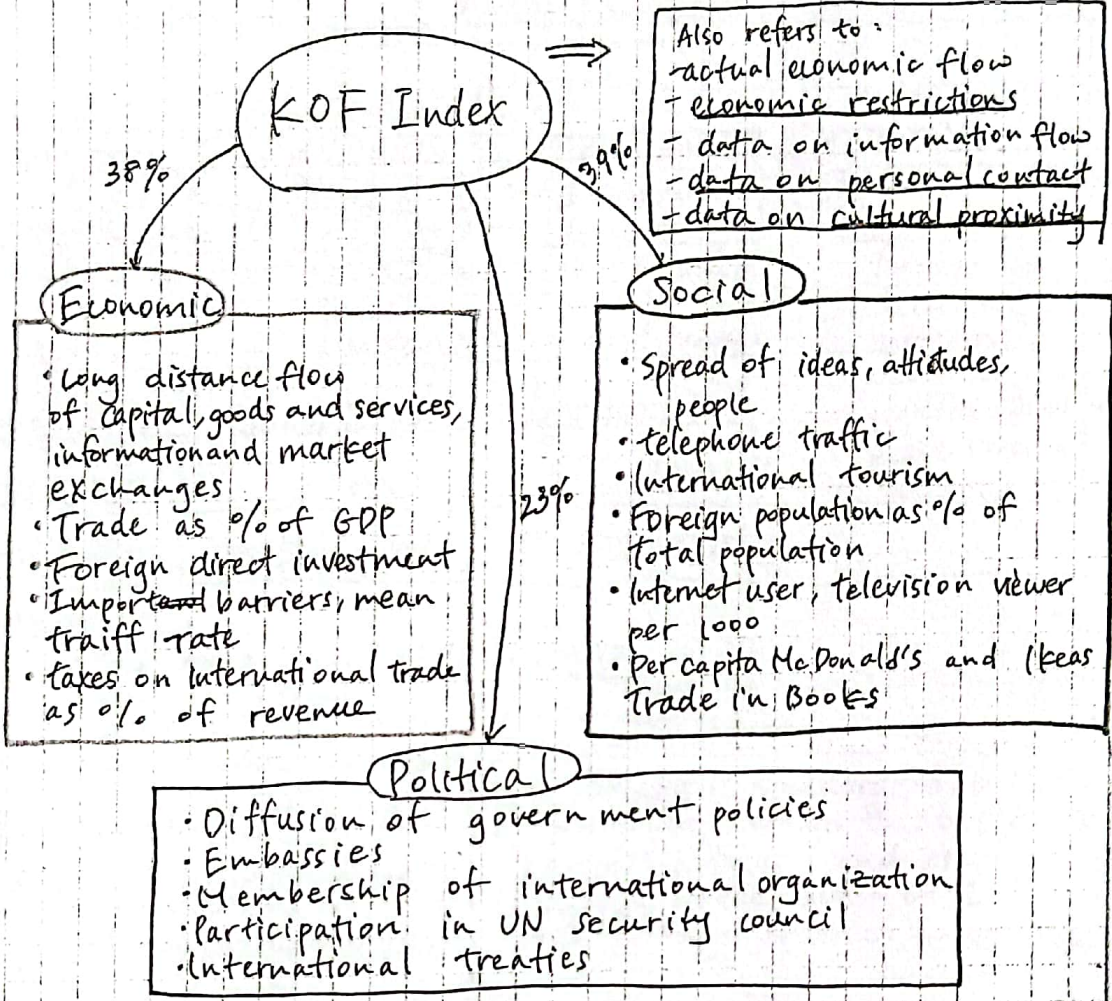 KOF Index
Also refers to:
-actual economic flow
- economic restrictions
- data on information flow
- data on personal contact
- data on cultural proximity
38%
39%
23%
Economic
• Long distance flow
of capital, goods and services,
information and market
exchanges
• Trade as % of GDP
• Foreign direct investment
• Import barriers, mean
traiff rate
• taxes on international trade
as % of revenue
Social
• Spread of ideas, attidudes,
people
• telephone traffic
• International tourism
• Foreign population as % of
total population
• Internet user, television viewer
per 1000
• Per capita McDonald's and Ikeas
Trade in Books
Political
• Diffusion of government policies
• Embassies
• Membership of international organization
• Participation in UN security council
• International treaties